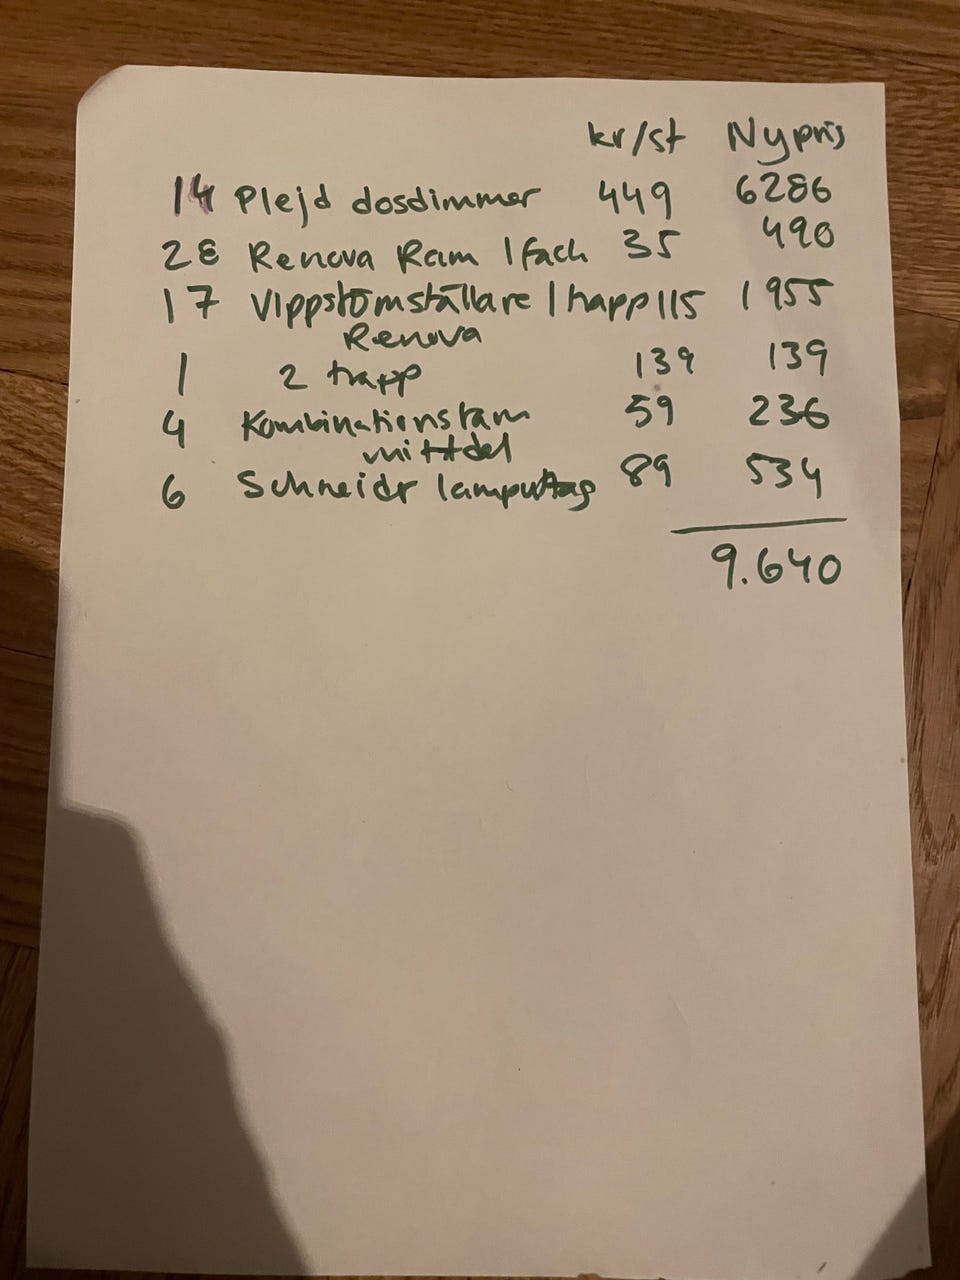 kr/st Nypris
14 Plejd dosdimmer 449 6286
28 Renova Ram 1 fack 35 490
17 Vippströmställare 1 trapp 115 1955
Renova
1 2 trapp 139 139
4 Kombinationsram 59 236
mittdel
6 Schneidr lamputtag 89 534
9.640